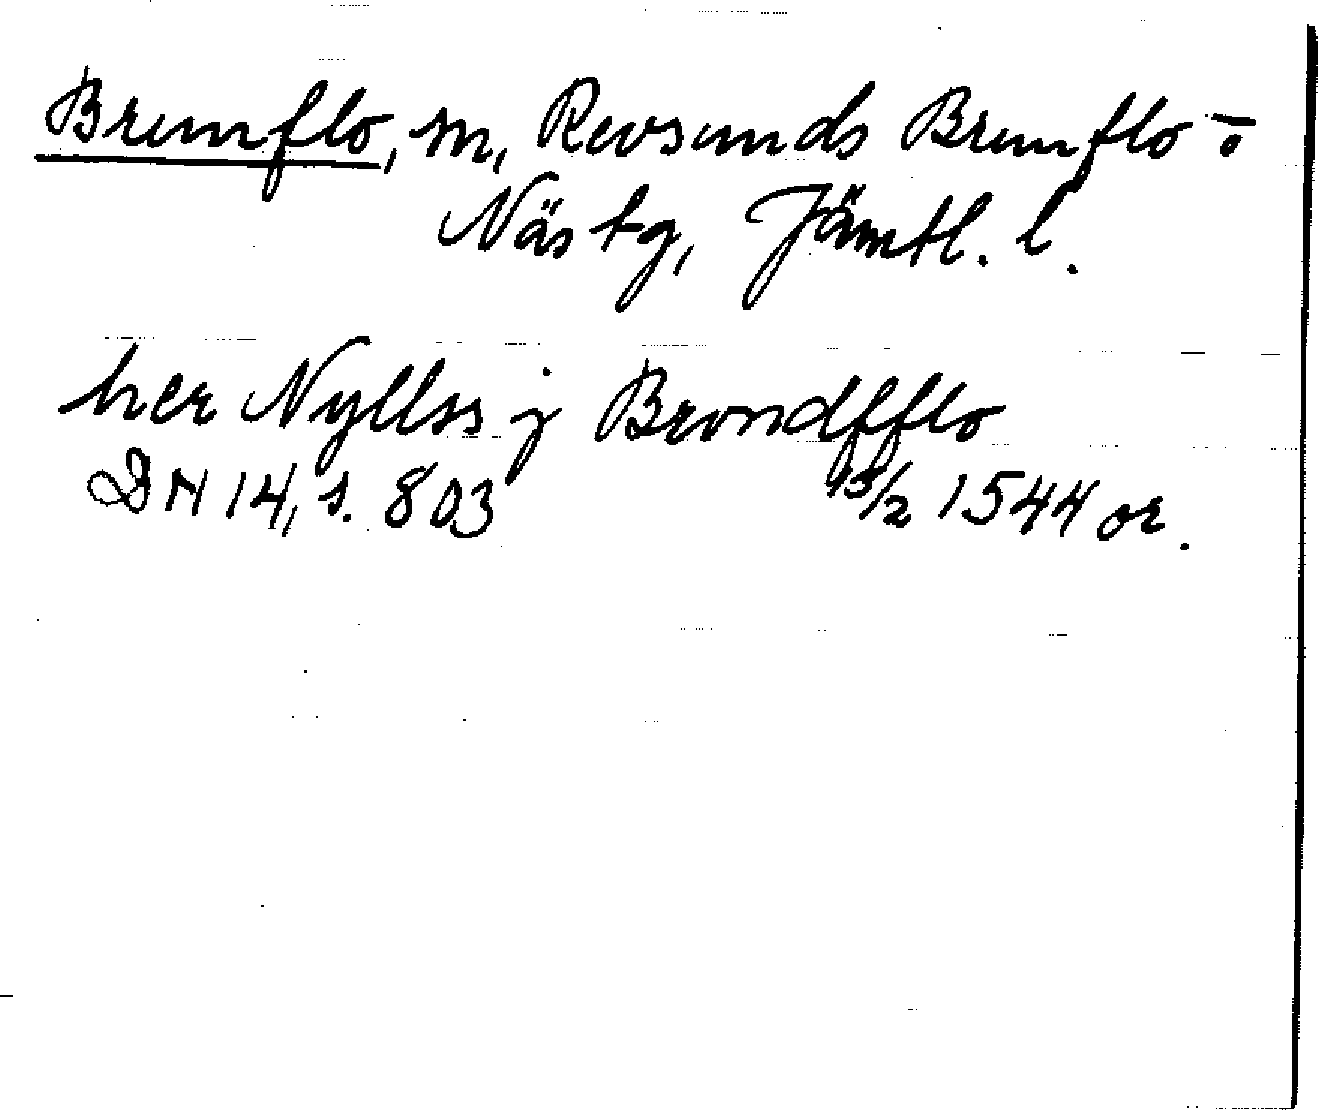 Brunflo, sn, Revsunds Brunflo o
Näs tg, Jämtl. l.
her Nyllss j Brondfflo
DN 14, s. 803 15/2 1544 or.